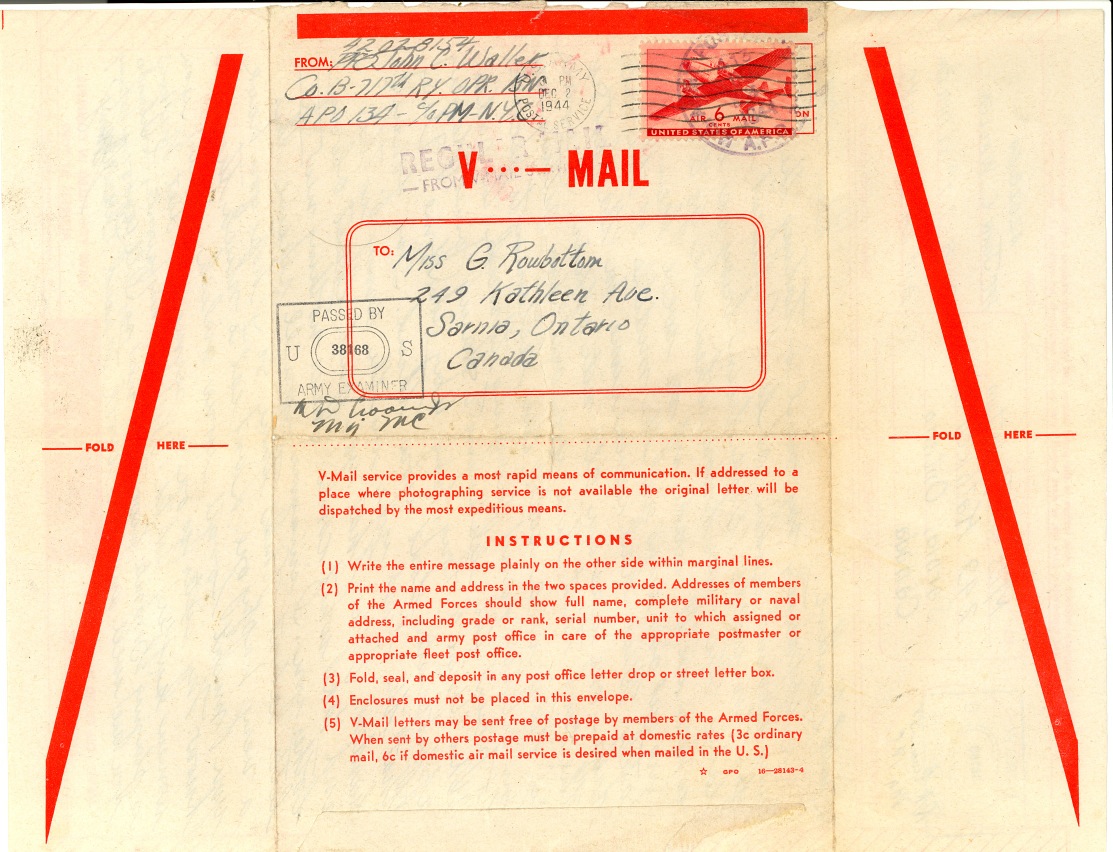 FROM:
Pfc John C. Waller
Co. B-717th RY. OPR. BN
APO 134 - c/o PM-N.Y.
PM
DEC 2
1944
AIR 6 MAIL
CENTS
UNITED STATES OF AMERICA
ON
REGULAR
FROM V-MAIL
V···— MAIL
TO: Miss G. Rowbottom
249 Kathleen Ave.
Sarnia, Ontario
Canada
PASSED BY
U 38168 S
ARMY EXAMINER
FOLD HERE
FOLD HERE
V-Mail service provides a most rapid means of communication. If addressed to a
place where photographing service is not available the original letter will be
dispatched by the most expeditious means.
INSTRUCTIONS
(1) Write the entire message plainly on the other side within marginal lines.
(2) Print the name and address in the two spaces provided. Addresses of members
of the Armed Forces should show full name, complete military or naval
address, including grade or rank, serial number, unit to which assigned or
attached and army post office in care of the appropriate postmaster or
appropriate fleet post office.
(3) Fold, seal, and deposit in any post office letter drop or street letter box.
(4) Enclosures must not be placed in this envelope.
(5) V-Mail letters may be sent free of postage by members of the Armed Forces.
When sent by others postage must be prepaid at domestic rates (3c ordinary
mail, 6c if domestic air mail service is desired when mailed in the U. S.)
☆ GPO 16—28143-4